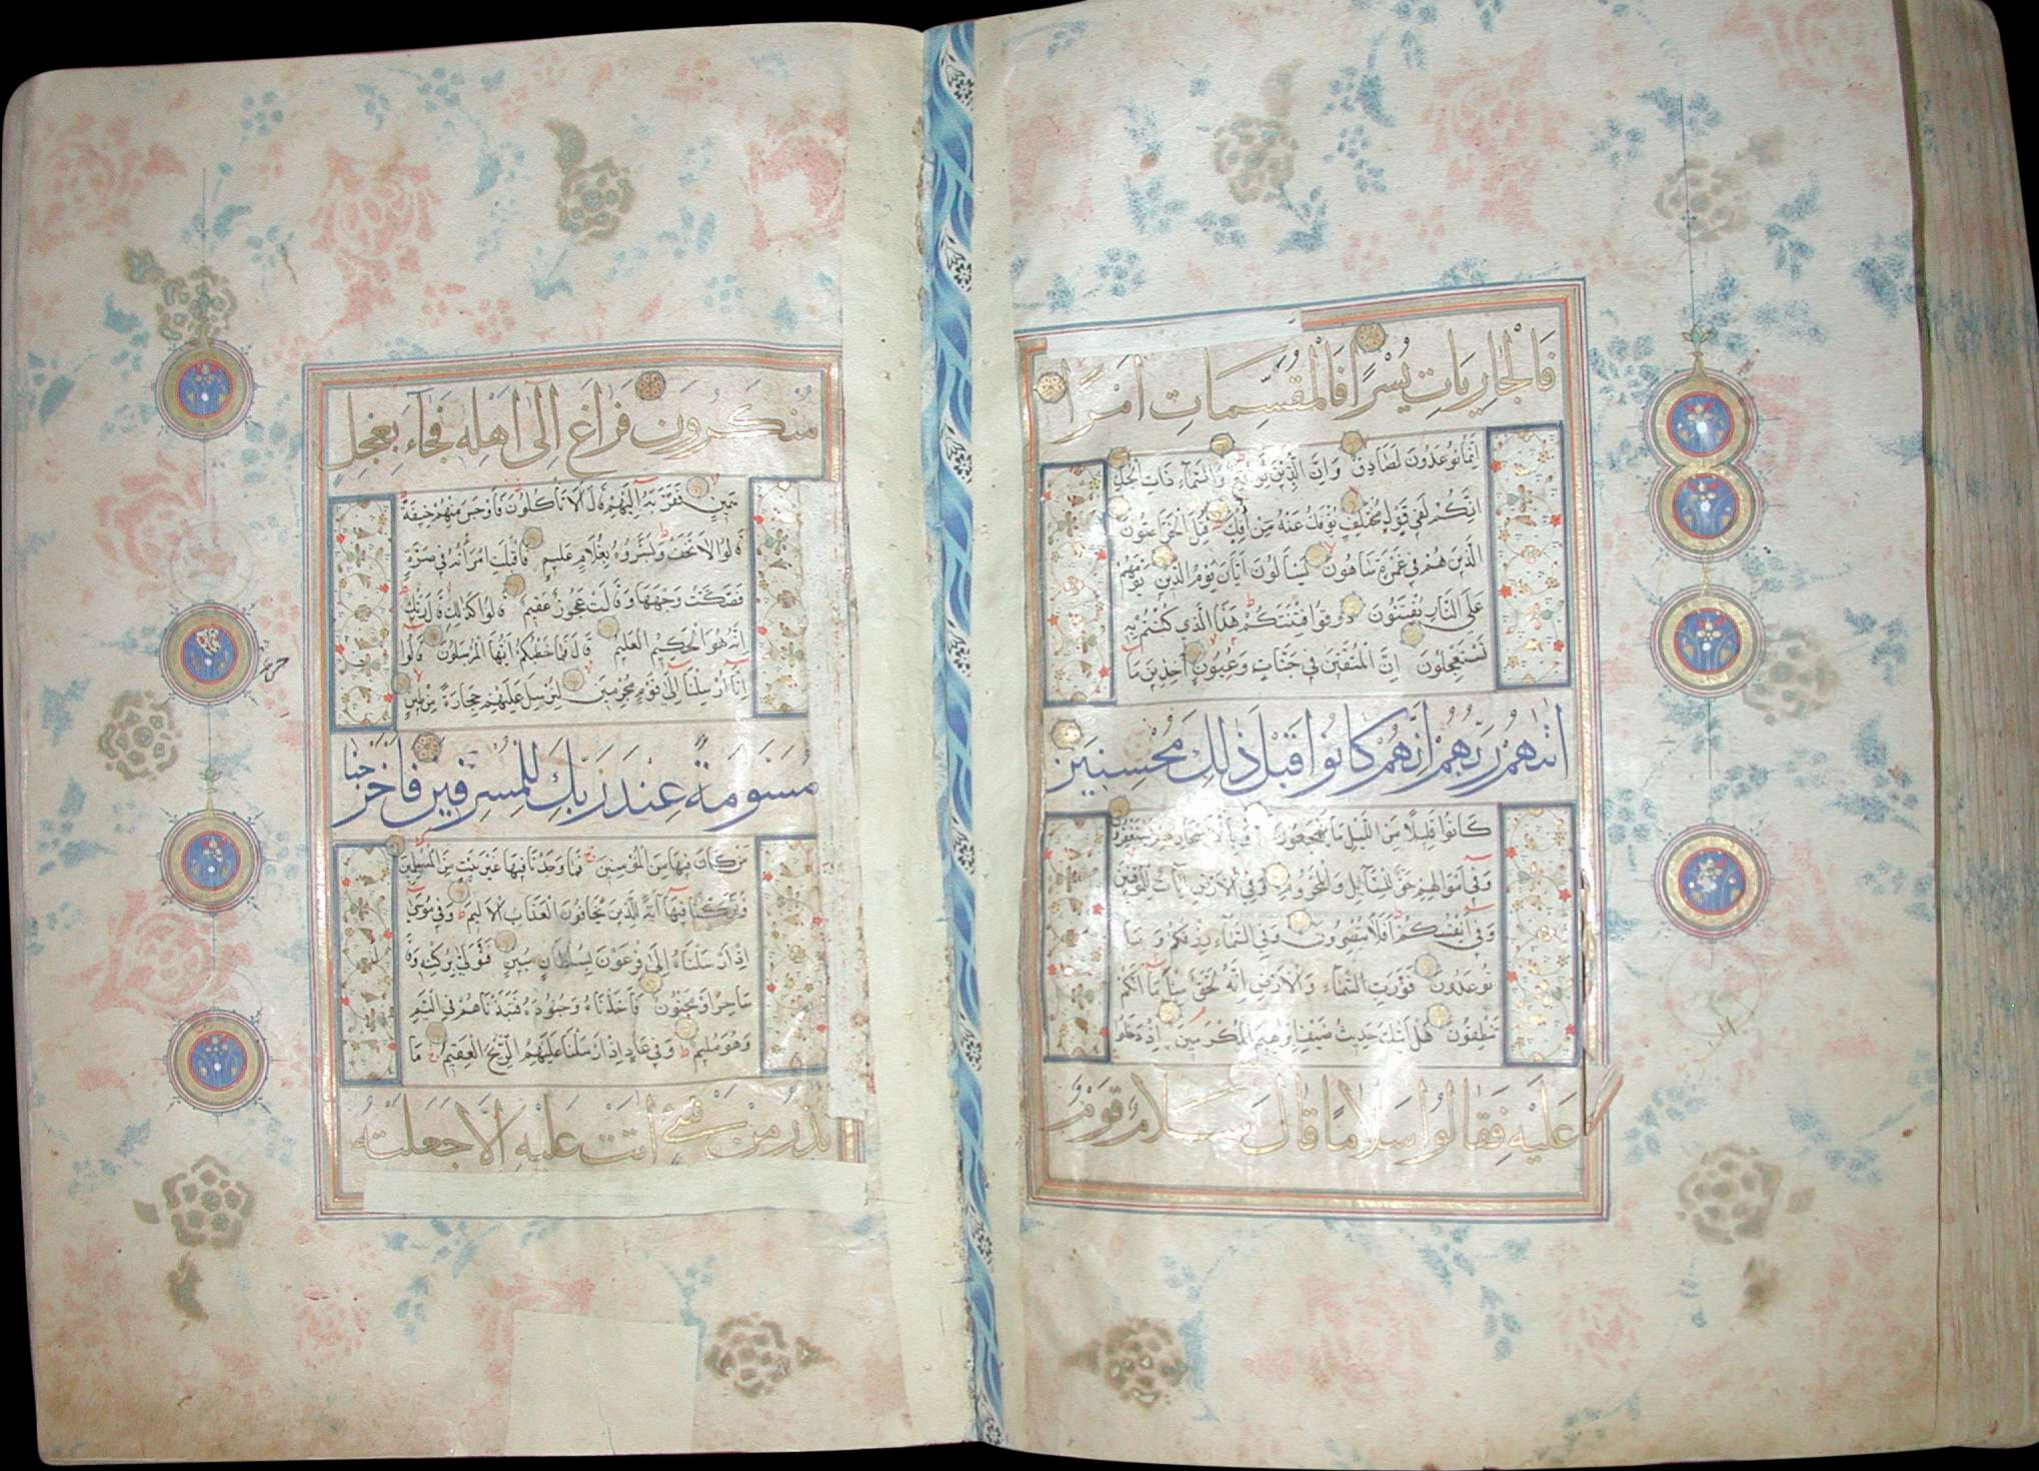 فَالْجَارِيَاتِ يُسْرًا فَالْمُقَسِّمَاتِ أَمْرًا
اِنَّمَا تُوعَدُونَ لَصَادِقٌ وَاِنَّ الدِّينَ لَوَاقِعٌ وَالسَّمَاءِ ذَاتِ الْحُبُكِ
اِنَّكُمْ لَفِي قَوْلٍ مُخْتَلِفٍ يُؤْفَكُ عَنْهُ مَنْ اُفِكَ قُتِلَ الْخَرَّاصُونَ
الَّذِينَ هُمْ فِي غَمْرَةٍ سَاهُونَ يَسْأَلُونَ اَيَّانَ يَوْمُ الدِّينِ يَوْمَ هُمْ
عَلَى النَّارِ يُفْتَنُونَ ذُوقُوا فِتْنَتَكُمْ هَذَا الَّذِي كُنْتُمْ بِهِ
تَسْتَعْجِلُونَ اِنَّ الْمُتَّقِينَ فِي جَنَّاتٍ وَعُيُونٍ آخِذِينَ مَا
اٰتٰهُمْ رَبُّهُمْ اِنَّهُمْ كَانُوا قَبْلَ ذٰلِكَ مُحْسِنِينَ
كَانُوا قَلِيلًا مِنَ اللَّيْلِ مَا يَهْجَعُونَ وَبِالْاَسْحَارِ هُمْ يَسْتَغْفِرُونَ
وَفِي اَمْوَالِهِمْ حَقٌّ لِلسَّآئِلِ وَالْمَحْرُومِ وَفِي الْاَرْضِ اٰيَاتٌ لِلْمُوقِنِينَ
وَفِي اَنْفُسِكُمْ اَفَلَا تُبْصِرُونَ وَفِي السَّمَاءِ رِزْقُكُمْ وَمَا
تُوعَدُونَ فَوَرَبِّ السَّمَاءِ وَالْاَرْضِ اِنَّهُ لَحَقٌّ مِثْلَ مَا اَنَّكُمْ
تَنْطِقُونَ هَلْ اَتٰيكَ حَدِيثُ ضَيْفِ اِبْرٰهِيمَ الْمُكْرَمِينَ اِذْ دَخَلُوا
عَلَيْهِ فَقَالُوا سَلَامًا قَالَ سَلَامٌ قَوْمٌ
مُنْكَرُونَ فَرَاغَ اِلٰى اَهْلِهِ فَجَآءَ بِعِجْلٍ
سَمِينٍ فَقَرَّبَهُ اِلَيْهِمْ قَالَ اَلَا تَأْكُلُونَ فَاَوْجَسَ مِنْهُمْ خِيفَةً
قَالُوا لَا تَخَفْ وَبَشَّرُوهُ بِغُلَامٍ عَلِيمٍ فَاَقْبَلَتِ امْرَأَتُهُ فِي صَرَّةٍ
فَصَكَّتْ وَجْهَهَا وَقَالَتْ عَجُوزٌ عَقِيمٌ قَالُوا كَذٰلِكِ قَالَ رَبُّكِ
اِنَّهُ هُوَ الْحَكِيمُ الْعَلِيمُ قَالَ فَمَا خَطْبُكُمْ اَيُّهَا الْمُرْسَلُونَ قَالُوا
اِنَّا اُرْسِلْنَا اِلٰى قَوْمٍ مُجْرِمِينَ لِنُرْسِلَ عَلَيْهِمْ حِجَارَةً مِنْ طِينٍ
مُسَوَّمَةً عِنْدَ رَبِّكَ لِلْمُسْرِفِينَ فَاَخْرَجْنَا
مَنْ كَانَ فِيهَا مِنَ الْمُؤْمِنِينَ فَمَا وَجَدْنَا فِيهَا غَيْرَ بَيْتٍ مِنَ الْمُسْلِمِينَ
وَتَرَكْنَا فِيهَا اٰيَةً لِلَّذِينَ يَخَافُونَ الْعَذَابَ الْاَلِيمَ وَفِي مُوسٰى
اِذْ اَرْسَلْنَاهُ اِلٰى فِرْعَوْنَ بِسُلْطَانٍ مُبِينٍ فَتَوَلّٰى بِرُكْنِهِ وَقَالَ
سَاحِرٌ اَوْ مَجْنُونٌ فَاَخَذْنَاهُ وَجُنُودَهُ فَنَبَذْنَاهُمْ فِي الْيَمِّ
وَهُوَ مُلِيمٌ وَفِي عَادٍ اِذْ اَرْسَلْنَا عَلَيْهِمُ الرِّيحَ الْعَقِيمَ مَا
تَذَرُ مِنْ شَيْءٍ اَتَتْ عَلَيْهِ اِلَّا جَعَلَتْهُ